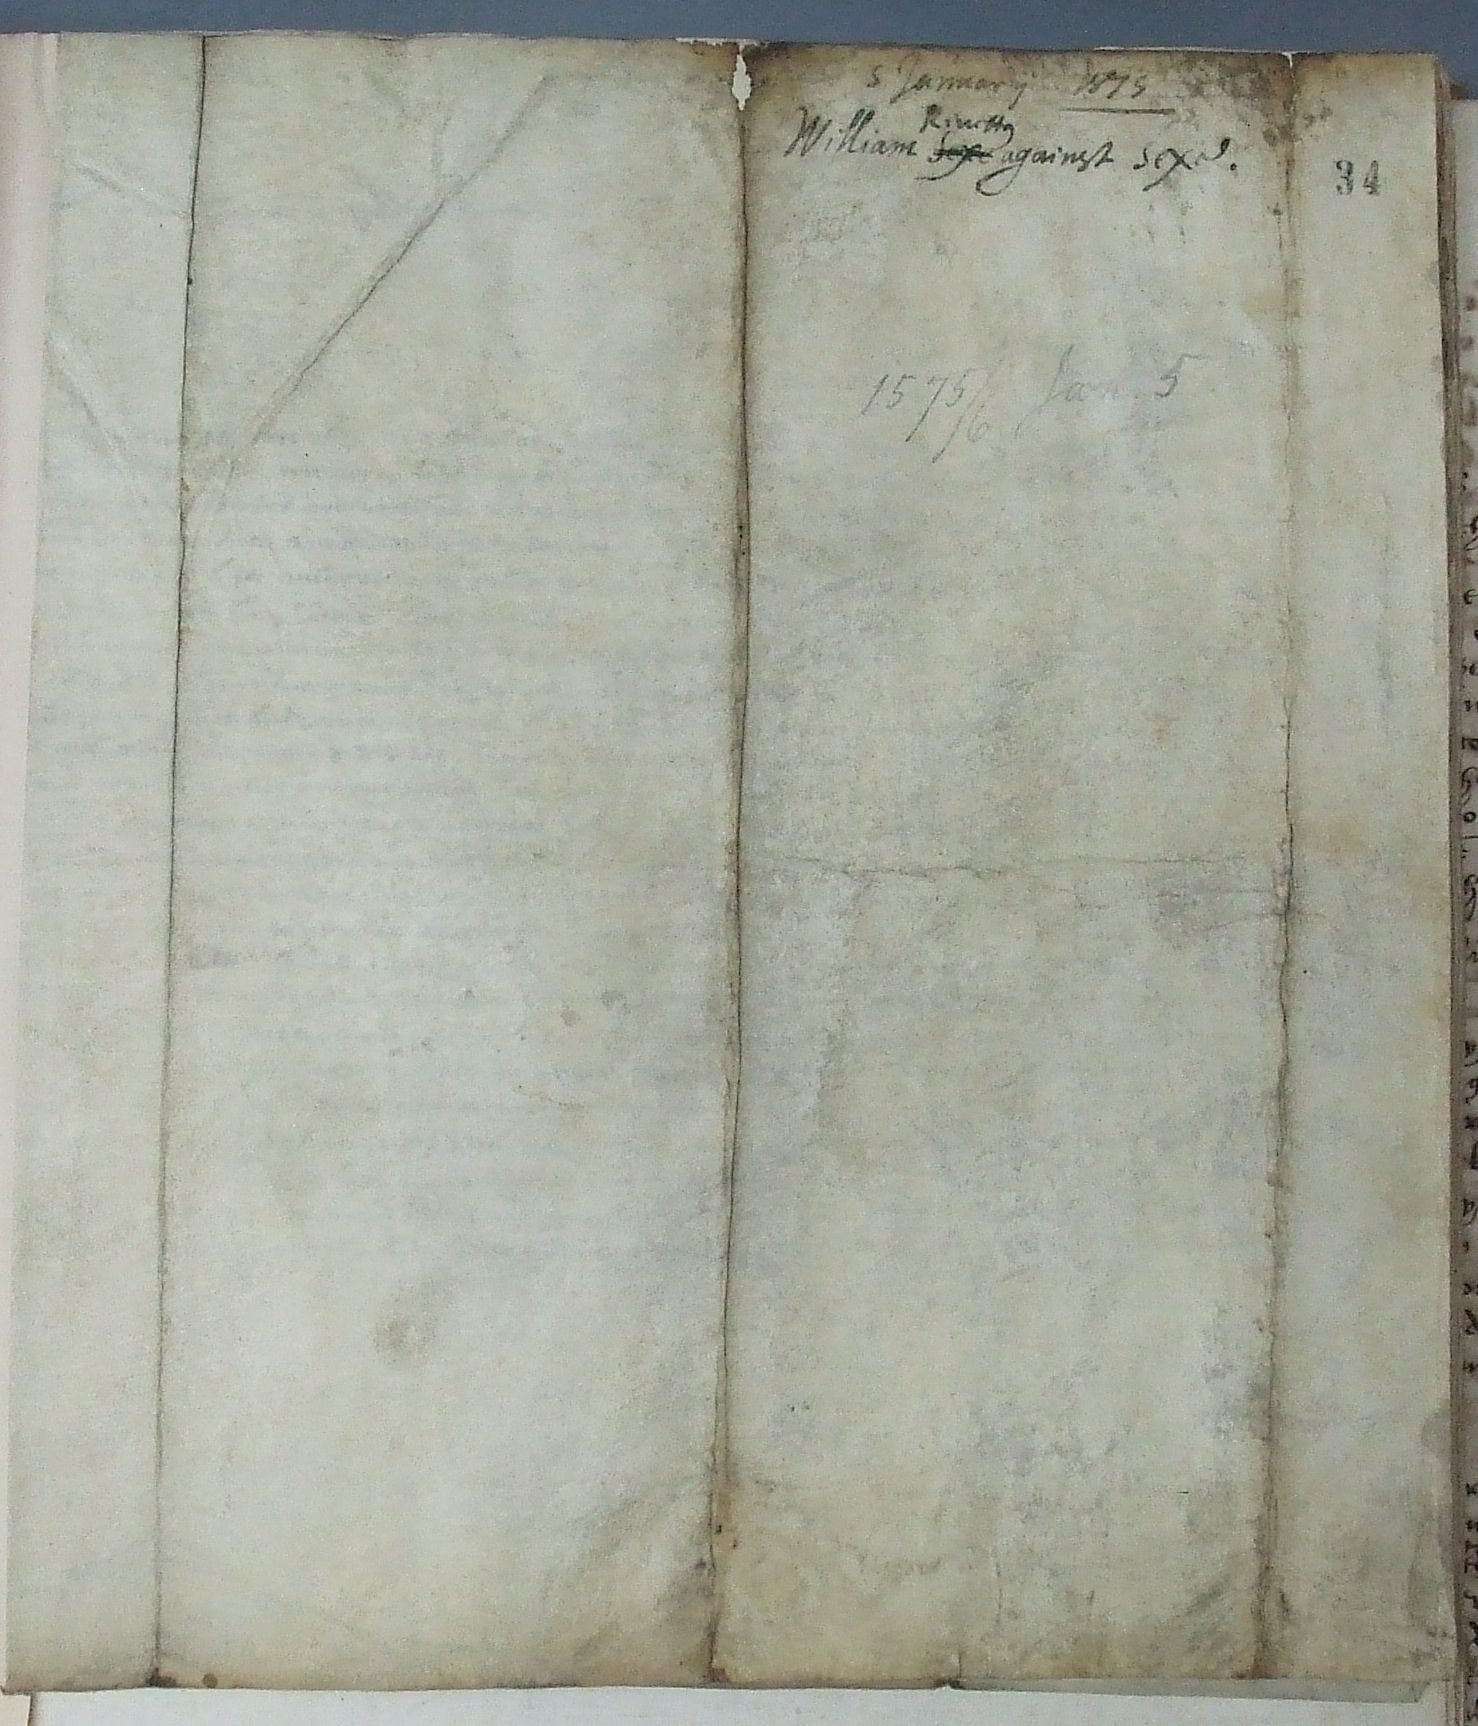 5 January 1575
Rivetts
William Sexe against Sexe.
34
1575/6 Jan. 5